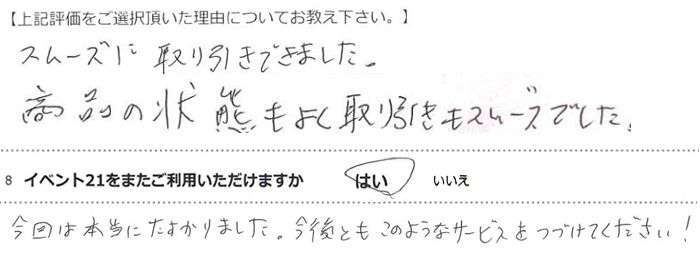 【上記評価をご選択頂いた理由についてお教え下さい。】
スムーズに取り引きできました。
商品の状熊もよく取り引きもスムーズでした。
8 イベント21をまたご利用いただけますか はい いいえ
今回は本当にたすかりました。今後ともこのようなサービスをつづけてください!